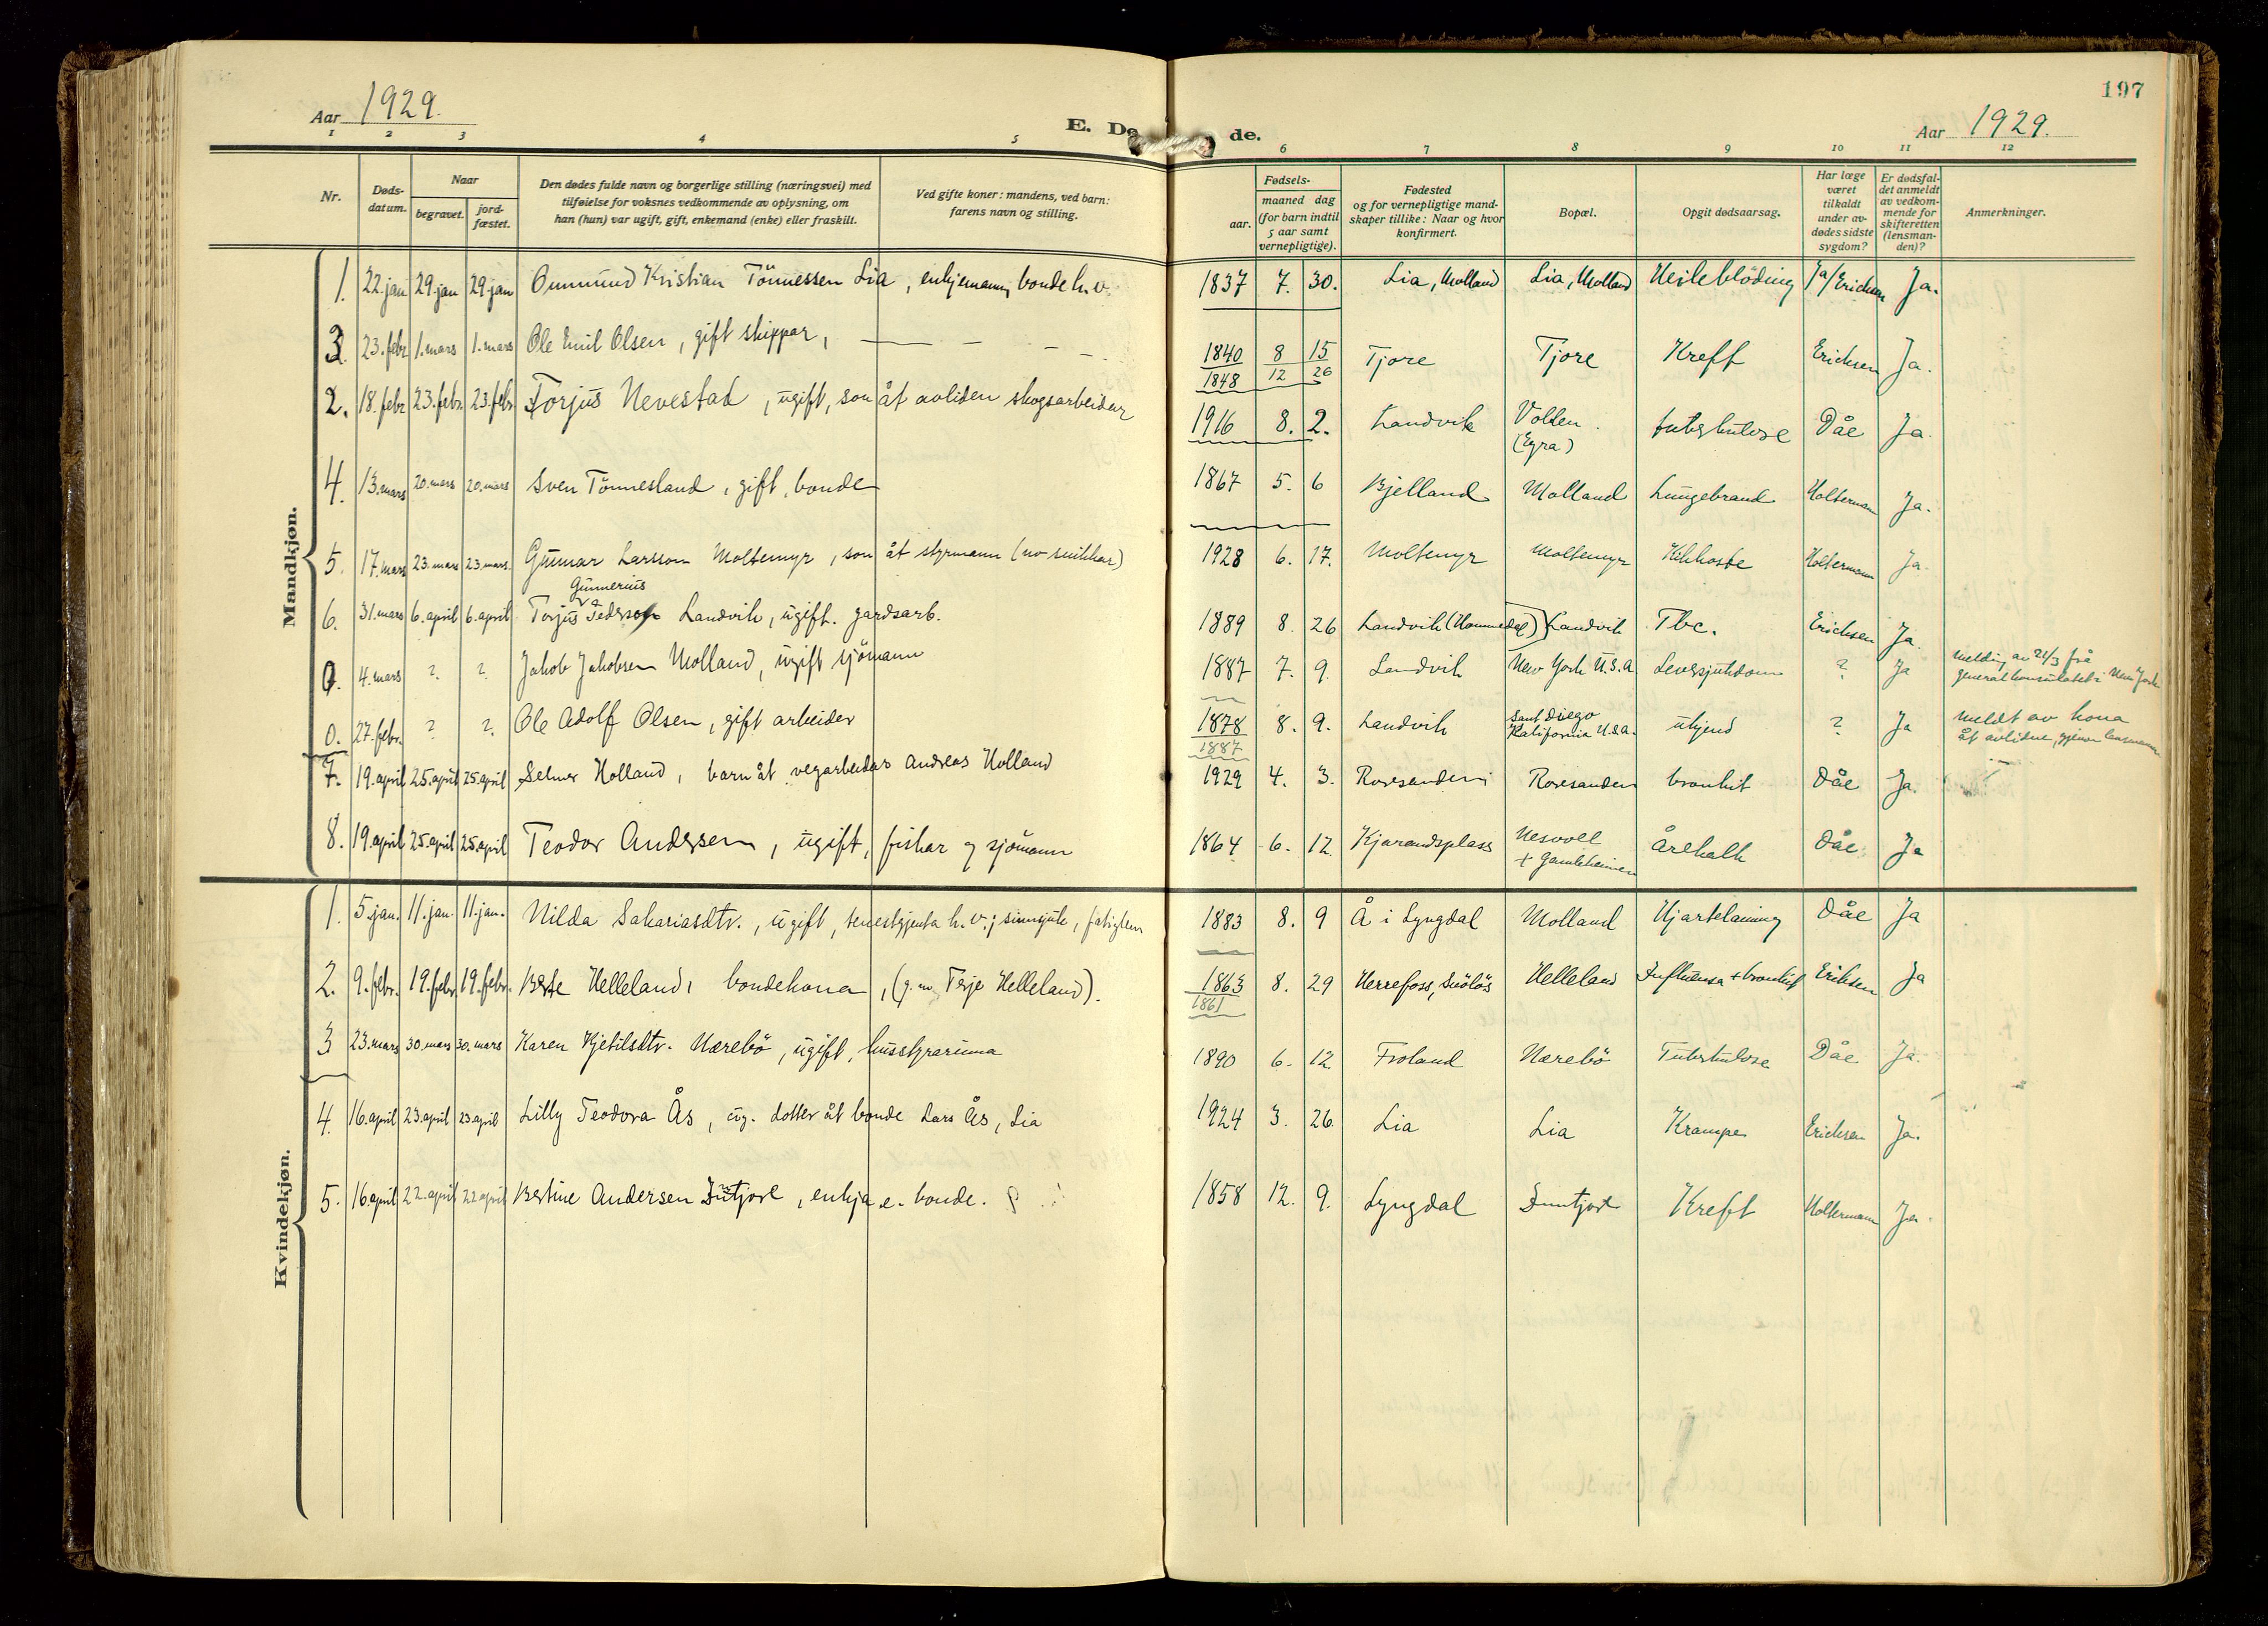 197
Aar 1929.
E. Dø de.
Aar 1929.
1 2 3 4 5 6 7 8 9 10 11 12
Nr.
Døds-datum.
Naar
begravet.
jord-fæstet.
Den dødes fulde navn og borgerlige stilling (næringsvei) med
tilføielse for voksnes vedkommende av oplysning, om
han (hun) var ugift, gift, enkemand (enke) eller fraskilt.
Ved gifte koner: mandens, ved barn:
farens navn og stilling.
Fødsels-
aar.
maaned dag
(for barn indtil
5 aar samt
vernepligtige).
Fødested
og for vernepligtige mand-
skaper tillike: Naar og hvor
konfirmert.
Bopæl.
Opgit dødsaarsag.
Har læge
været
tilkaldt
under av-
dødes sidste
sygdom?
Er dødsfal-
det anmeldt
av vedkom-
mende for
skifteretten
(lensman-
den)?
Anmerkninger.
Mandkjøn.
1. 22. jan 29. jan 29. jan Gunmund Kristian Tönnessen Lia, enkjemann, bonde h.v. 1837 7. 30. Lia, Molland Lia, Molland Heileblöding Ja/Ericksen Ja.
3. 23. febr 1. mars 1. mars Ole Emil Olsen, gift skippar, 1840 8 15 Tjore Tjore Kreft Ericksen Ja.
1848 12 26
2. 18. febr 23. febr. 23. febr Torjus Nevestad, ugift, son åt avliden skogsarbeidar 1916 8. 2. Landvik Volten. (Egra) tuberkulose Dåe Ja.
4. 13. mars 20. mars 20. mars Sven Tönnesland, gift, bonde 1867 5. 6 Bjelland Molland Lungebrand Holtermann Ja.
5. 17. mars 23. mars 23. mars. Gunnar Larsson Moltemyr, son åt styrmann (no snikkar) 1928 6. 17. Moltemyr Moltemyr Kikhoste Holtermann Ja.
Gunnerius
6. 31. mars 6. april 6. april Torjus Pederson Landvik, ugift. gardsarb. 1889 8. 26 Landvik (Hommedal) Landvik Tbc. Ericksen Ja.
0. 4. mars ? ? Jakob Jakobsen Molland, ugift sjömann 1887 7. 9. Landvik New York U.S.A Leversjukdom ? Ja melding av 21/3 frå
generalkonsulatet i New York
0. 27. febr. ? ? Ole Adolf Olsen, gift arbeider 1878 8. 9. Landvik Sant Diego
Kalifornia U.S.A. ukjend ? Ja meldt av kona
åt avlidne, gjenom lensmannen
1887
7. 19. april 25. april 25. april Selmer Holland, barn åt vegarbeidar Andreas Holland 1929 4. 3. Roresanden Roresanden bronkit Dåe Ja.
8. 19. april 25. april 25. april Teodor Andersen, ugift, fiskar og sjömann 1864 6. 12 Kjarandsplass Nesvoll
+ Gamleheimen Årekalk Dåe Ja
Kvindekjøn.
1. 5. jan. 11. jan. 11. jan. Hilda Sakariasdtr., ugift, tenestgjenta h.v.; sinnsjuk, fatiglem 1883 8. 9 Å i Lyngdal Molland Hjartelaming Dåe Ja
2. 9. febr. 19. febr 19. febr. Berte Helleland, bondekona, (g.m Terje Helleland). 1863 8. 29 Herrefoss, Helleland Influensa + bronkit Eriksen Ja
1861
3 23. mars 30. mars 30. mars Karen Kjetilsdtr. Nærebö, ugift, husstyrarinna 1890 6. 12. Froland Nærebö Tuberkulose Dåe Ja.
4. 16. april 23. april 23 april Lilly Teodora Ås, ug. dotter åt bonde Lars Ås, Lia 1924 3. 26. Lia Lia Krampe Ericksen Ja.
5. 16. april 22. april 22 april Bertine Andersen Inntjore, enkja e. bonde. 1858 12. 9. Lyngdal Inntjore Kreft Holtermann Ja.